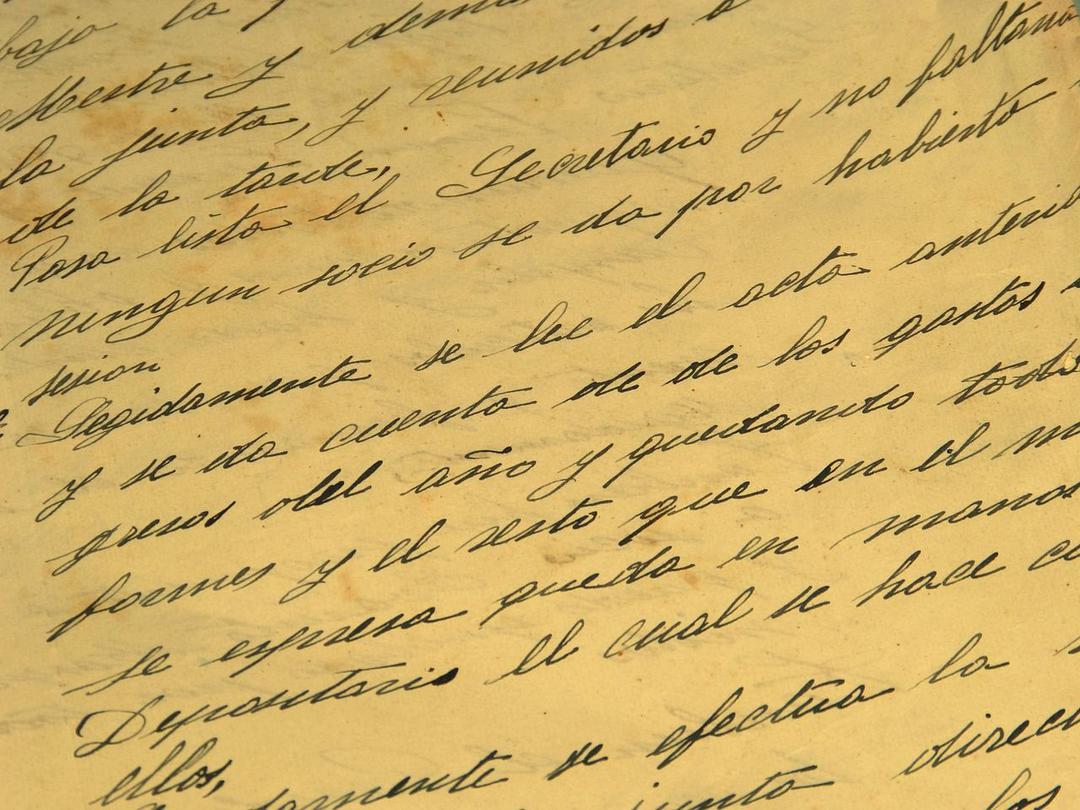 bajo la
Mestre y demas
la junta, y reunidos a
de la tarde,
Pasa lista el Secretario y no faltan
ningun socio se da por habierto
sesion
Segidamente se lee el acta anterio
y se da cuenta de de los gastos
gresos del año y quedando todo
formes y el resto que en el m
se espresa queda en manos
Depositario el cual se hace c
ellos,
damente se efectua la
junta direc
los